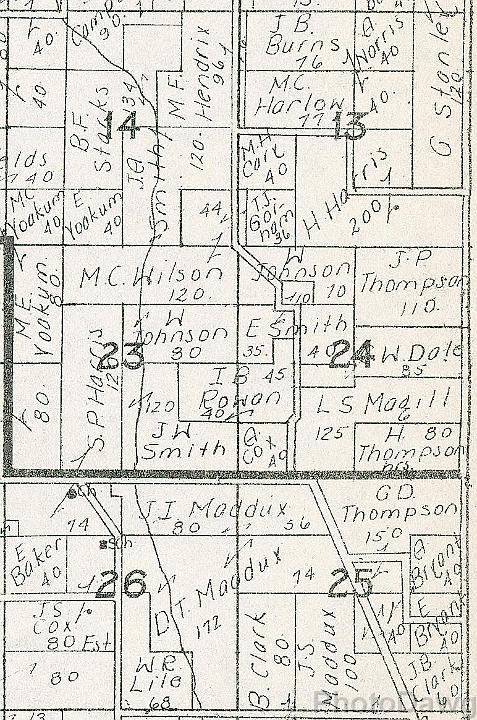 Camp
90.
40.
J.B.
Burns
76
A
Norris
40
G Stanley
120.
M.F. Hendrix
96
120.
40
B.F.
Starks
134
14
M.C.
Harlow
77
40.
13
J.A
Smith
elds
40
M.H
Cark
40
H Harris
200
MC
Yookum
40
E
Yookum
40
44
T.J.
Gor
ham
36
M.E.
Yookum.
80
M.C. Wilson
120.
W
Johnson
110 70
J.P
Thompson
110.
W
Johnson
80
E Smith
35.
40
23
24
W. Dale
85
S.P Harris
80.
120
I B 45
Rowan
40
L S Magill
125
H. 80
Thompson
J W
Smith
A
Cox
40
Sch
74
Sch
J.J Maddux
80 56
G D.
Thompson
150
E
Baker
40
26
D T. Maddux
172
74
25
A
Bryant
40
E
Bryant
40
40
J.S
Cox
80 Est
80
W.R.
Lile
68
B. Clark
80
J.S
Maddux
100
J.B
Clark
60
PhotoDawg